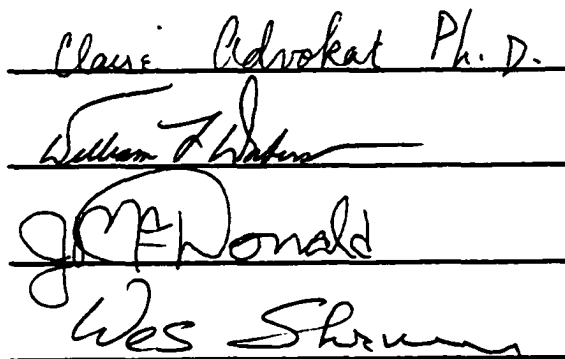 Claire Advokat Ph.D.
William F Waters
J McDonald
Wes